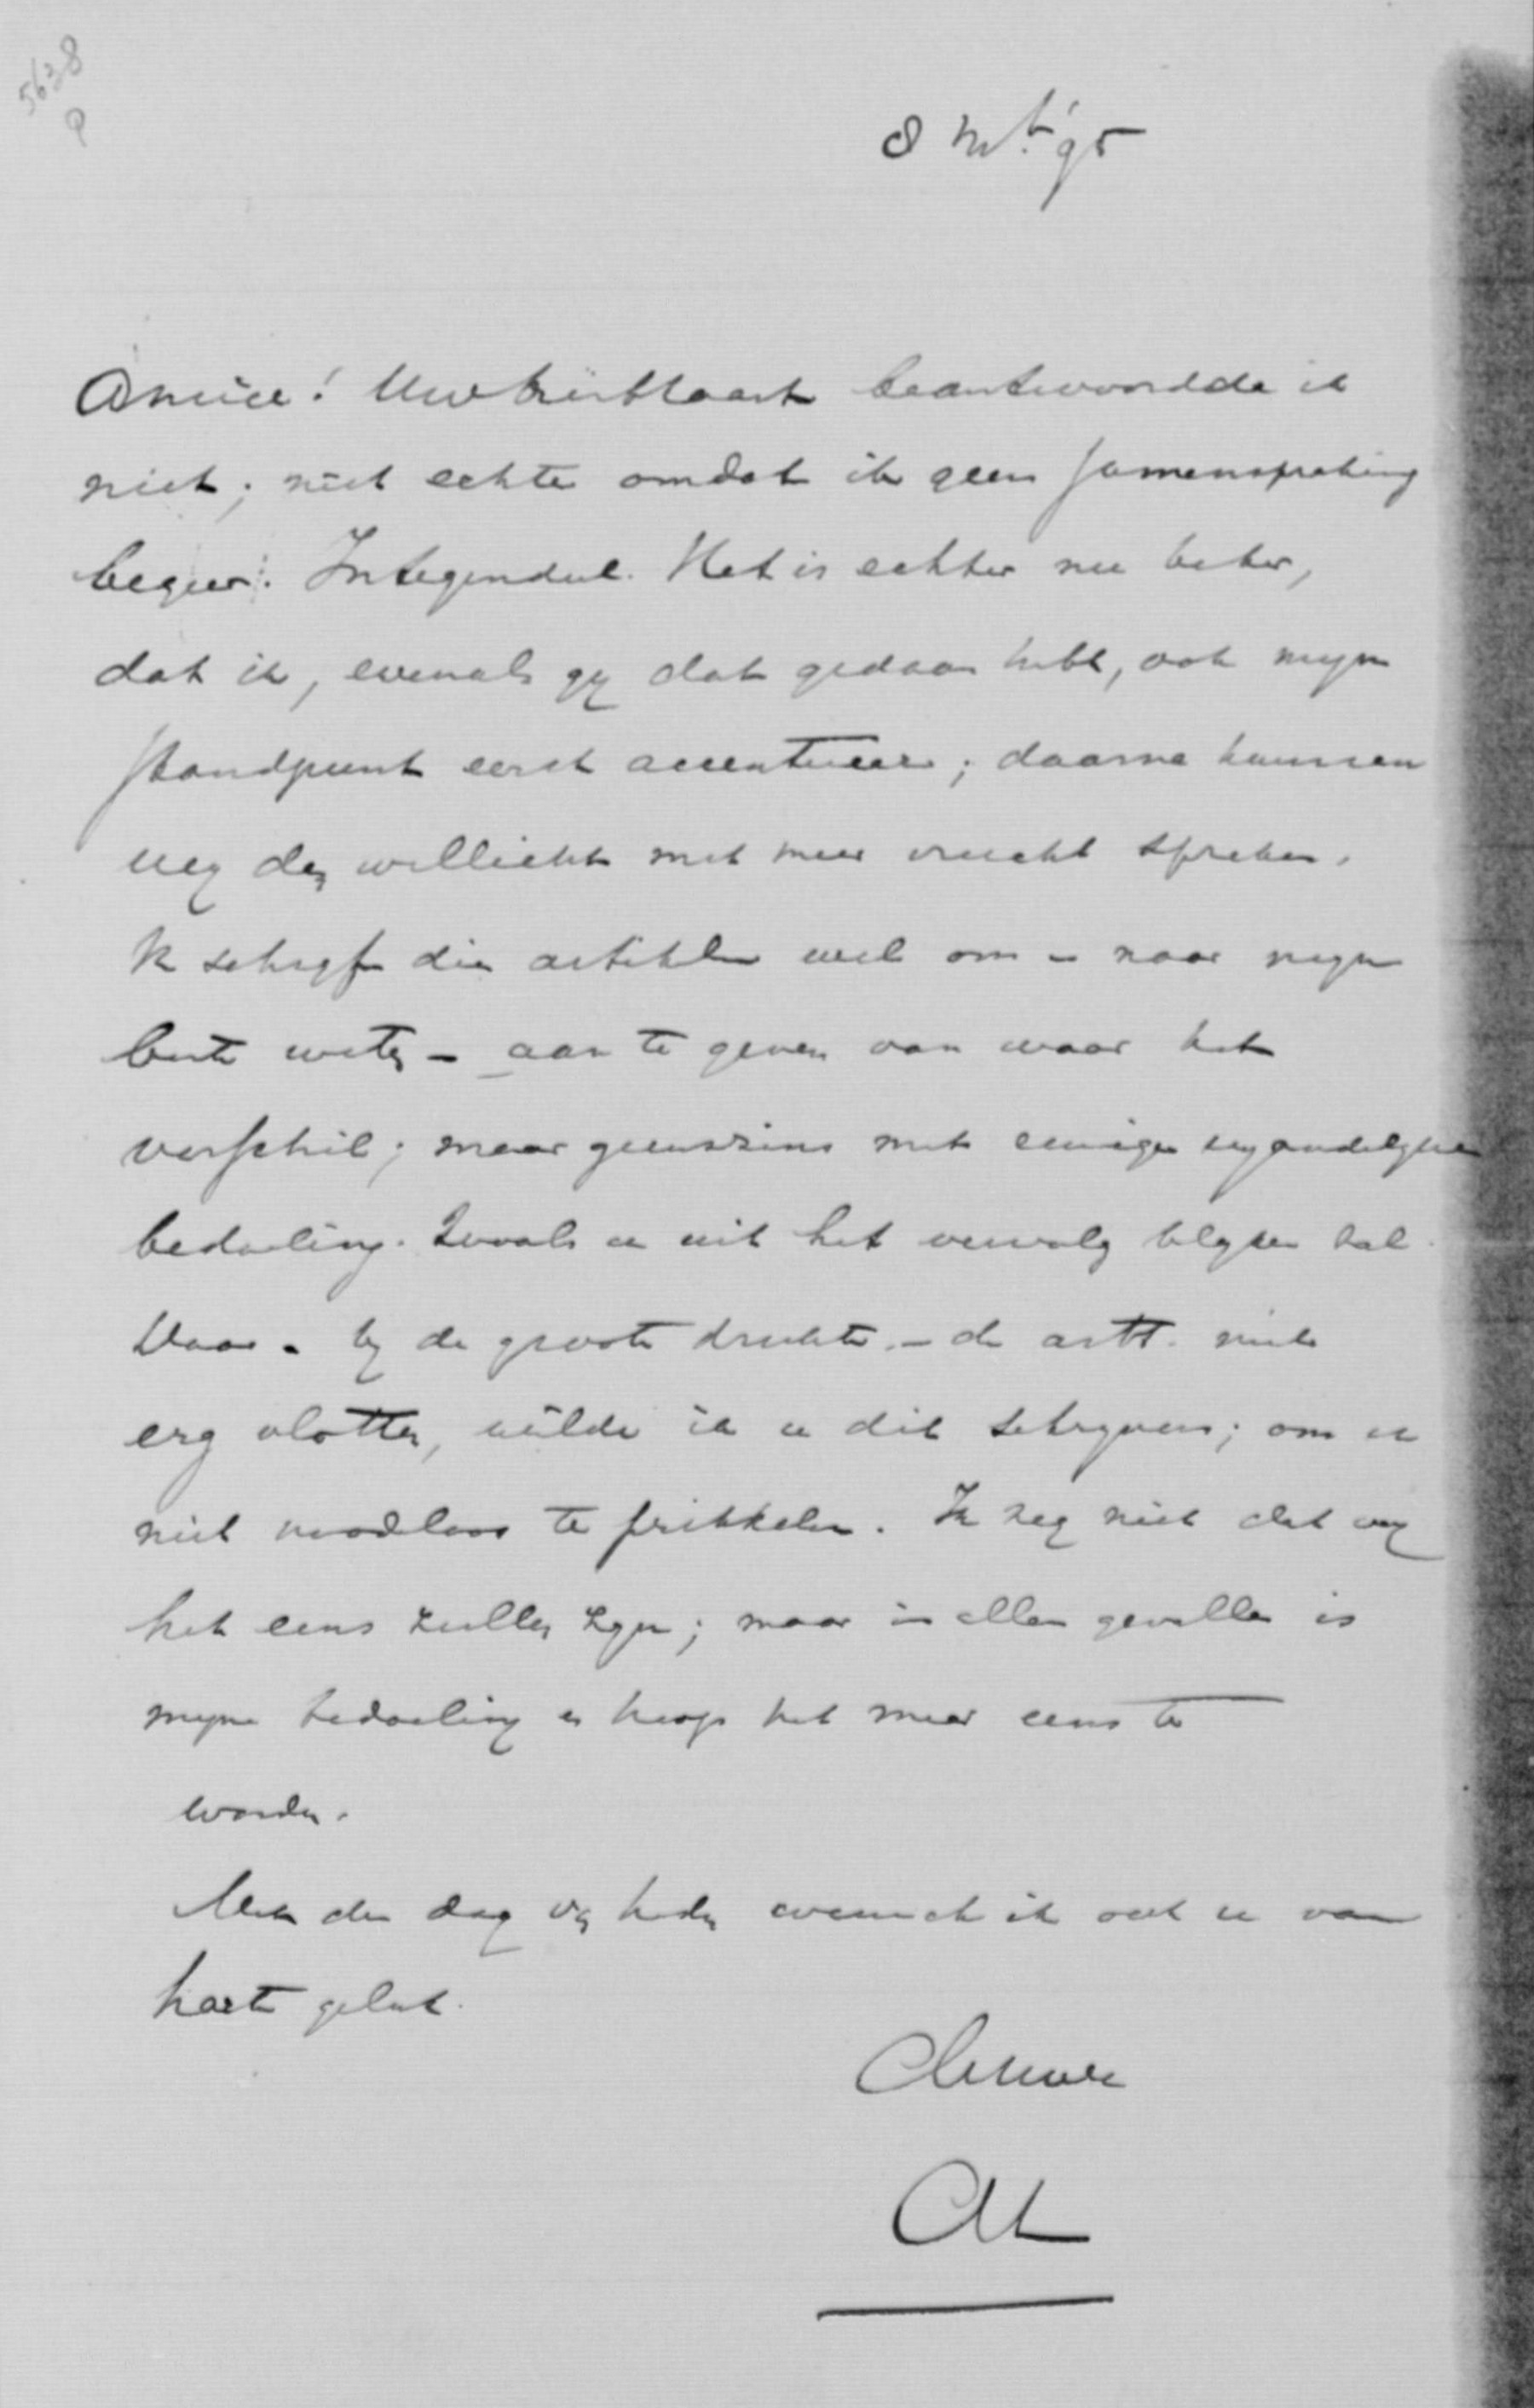 5638
8 Mrt. '95
Amice! Uw briefkaart beantwoordde ik
niet; niet echter omdat ik geen samenspreking
begeer. Integendeel. Het is echter nu beter,
dat ik, evenals gij dat gedaan hebt, ook mijn
standpunt eerst accentueer; daarna kunnen
wij dan wellicht met meer vrucht spreken.
Ik schrijf die artikelen wel om - naar mijn
beste weten - aan te geven van waar het
verschil; maar geenszins met eenige vijandelijke
bedoeling. Zooals u uit het vervolg blijken zal.
Daar - bij de groote drukte - de artt. niet
erg vlotten, wilde ik u dit schrijven; om u
niet noodloos te prikkelen. Ik zeg niet dat wij
het eens zullen zijn; maar in allen gevalle is
mijne bedoeling en hoop het meer eens te
worden.
Met den dag van heden wensch ik ook u van
harte geluk.